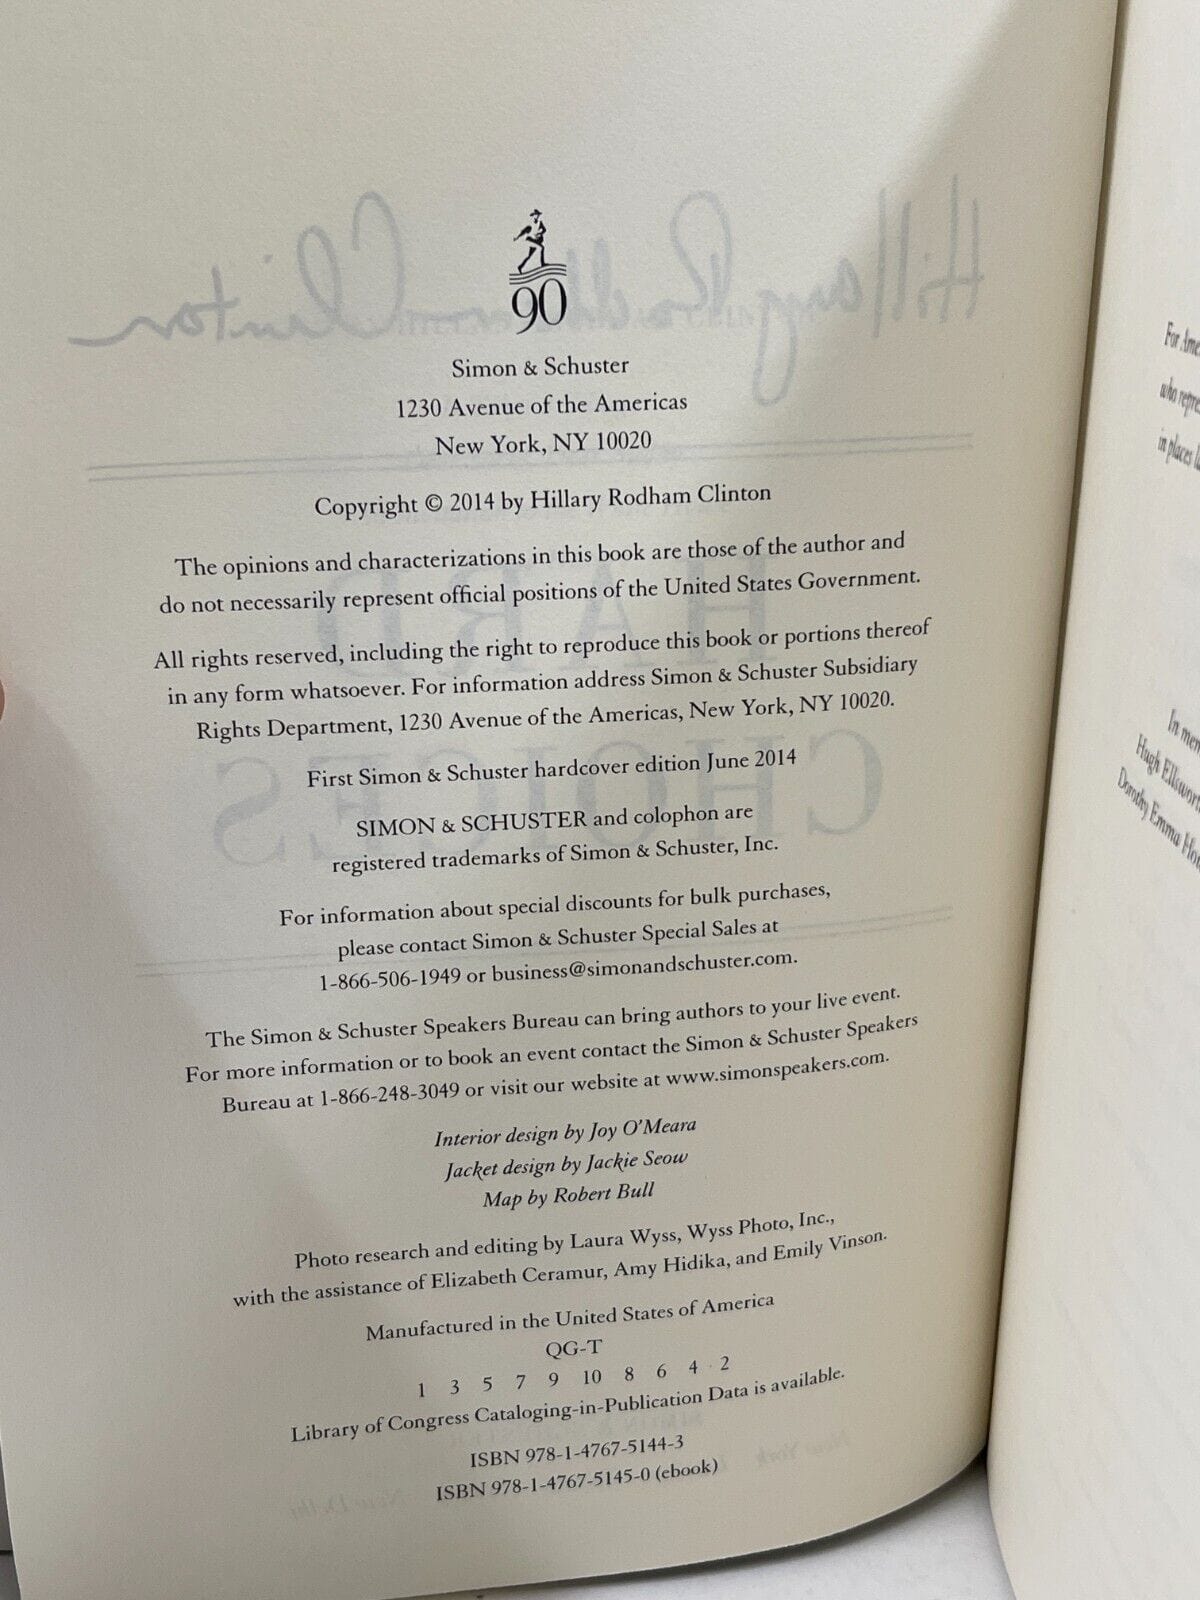 90
Simon & Schuster
1230 Avenue of the Americas
New York, NY 10020
Copyright © 2014 by Hillary Rodham Clinton
The opinions and characterizations in this book are those of the author and
do not necessarily represent official positions of the United States Government.
All rights reserved, including the right to reproduce this book or portions thereof
in any form whatsoever. For information address Simon & Schuster Subsidiary
Rights Department, 1230 Avenue of the Americas, New York, NY 10020.
First Simon & Schuster hardcover edition June 2014
SIMON & SCHUSTER and colophon are
registered trademarks of Simon & Schuster, Inc.
For information about special discounts for bulk purchases,
please contact Simon & Schuster Special Sales at
1-866-506-1949 or business@simonandschuster.com.
The Simon & Schuster Speakers Bureau can bring authors to your live event.
For more information or to book an event contact the Simon & Schuster Speakers
Bureau at 1-866-248-3049 or visit our website at www.simonspeakers.com.
Interior design by Joy O'Meara
Jacket design by Jackie Seow
Map by Robert Bull
Photo research and editing by Laura Wyss, Wyss Photo, Inc.,
with the assistance of Elizabeth Ceramur, Amy Hidika, and Emily Vinson.
Manufactured in the United States of America
QG-T
1 3 5 7 9 10 8 6 4 2
Library of Congress Cataloging-in-Publication Data is available.
ISBN 978-1-4767-5144-3
ISBN 978-1-4767-5145-0 (ebook)
Hillary Rodham Clinton
HARD
CHOICES
For
who
in places
In
Hugh
Dorothy Emma